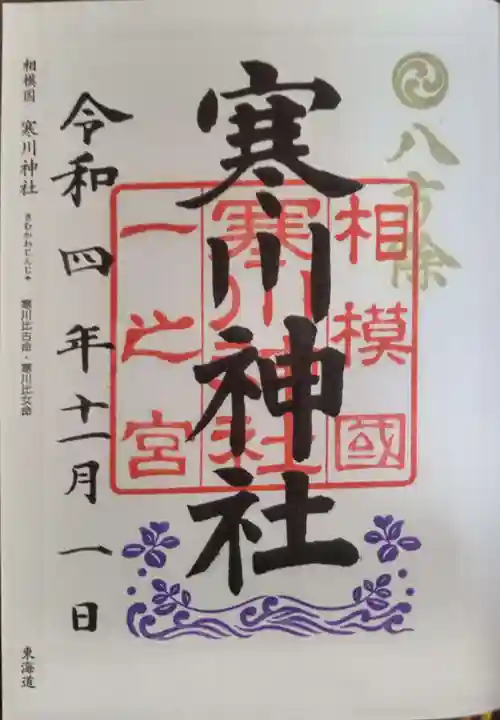 八方除
相模國
寒川神社
一之宮
寒川神社
令和四年十一月一日
相模国 寒川神社 さむかわじんじゃ 寒川比古命・寒川比女命
東海道